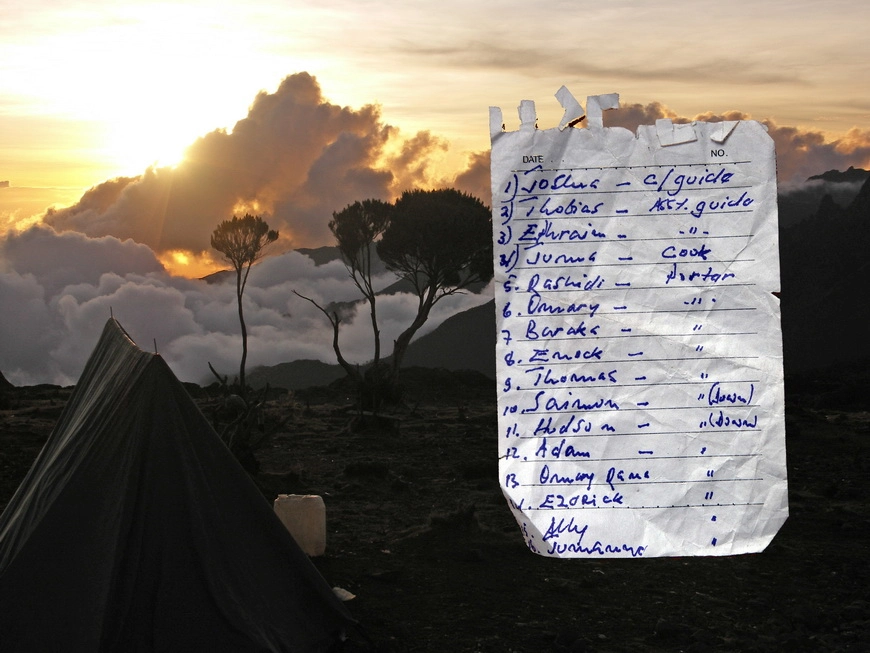 DATE NO.
1) Joshua – c/guide
2) Thobias – Asst. guide
3) Ephraim – -"-
4) Juma – Cook
5. Rashidi – Portar
6. Ommary – -"-
7 Baraka – "
8. Enock – "
9. Thomas – "
10. Saimon – " (Down)
11. Hudson – " (Down)
12. Adam – "
13 Omary Rama "
Ezorick "
Ally "
Jumanne "